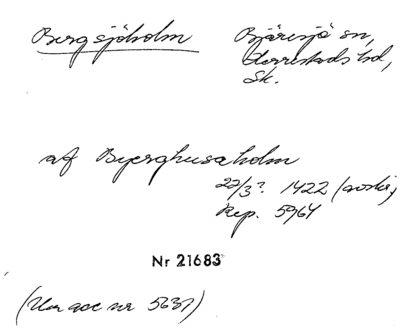 Bergsjöholm
Bjäresjö sn,
Herrestads hd,
Sk.
af Bierghusaholm
22/3? 1422 (avskr.)
Rep. 5964
Nr 21683
(Ur acc nr 5637)